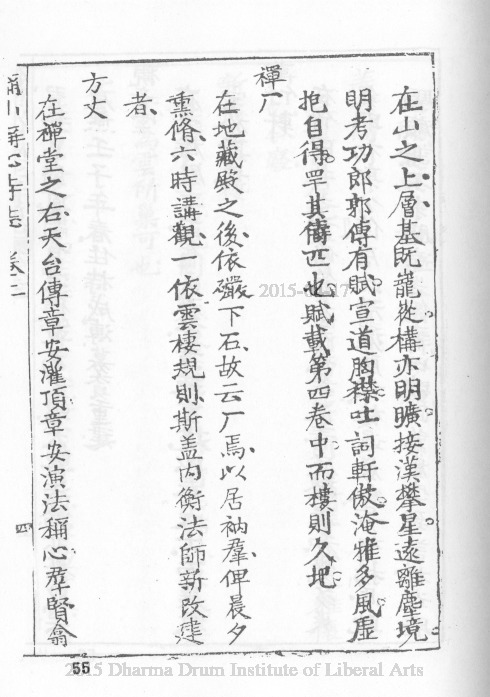 在山之上層基既巃嵸構亦明曠接漢攀星遠離塵境
明考功郎郭傳有賦宣道胸襟吐詞軒倣淹雅多風虛
抱自得罕其儔匹也賦載第四卷中而樓則久圯
禪厂
在地藏殿之後依巖下石故云厂焉以居衲羣俾晨夕
熏脩六時講觀一依雲棲規則斯盖內衡法師新改建
者
方丈
在禪堂之右天台傳章安灌頂章安演法稱心羣賢翕
稱心寺志 卷二
四
55
2015 Dharma Drum Institute of Liberal Arts